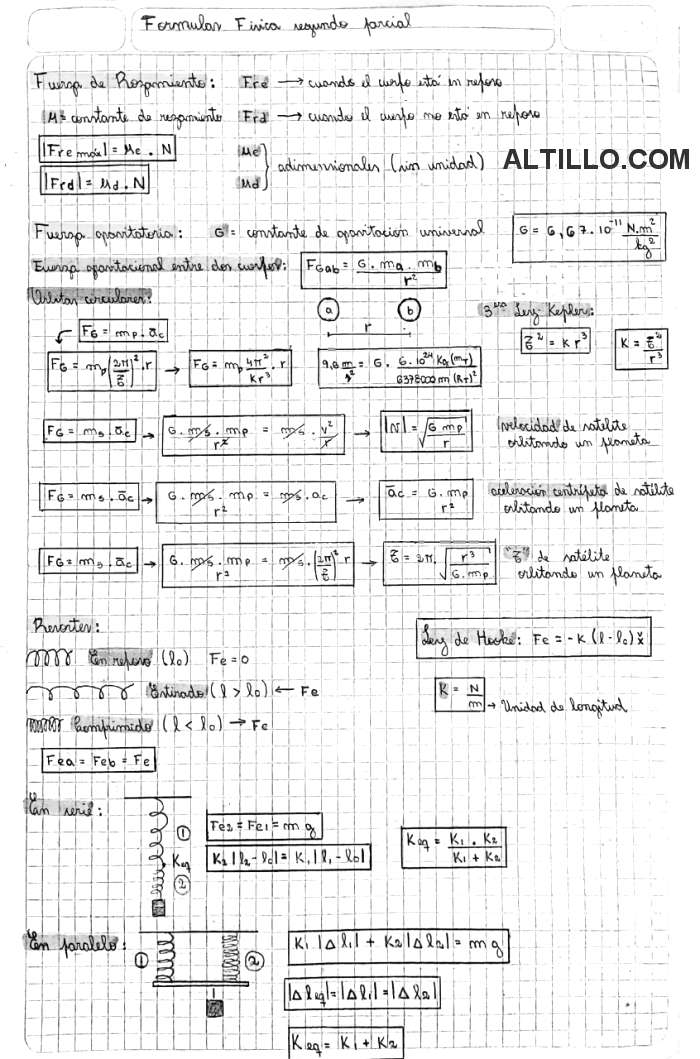 Formulas Física segundo parcial
Fuerza de Rozamiento: Fre → cuando el cuerpo está en reposo
μ = constante de rozamiento Frd → cuando el cuerpo no está en reposo
|Fre máx| = μe . N
|Frd| = μd . N
μe
μd } adimensionales (sin unidad)
ALTILLO.COM
Fuerza gravitatoria: G = constante de gravitacion universal
G = 6,67.10⁻¹¹ N.m²/kg²
Fuerza gravitacional entre dos cuerpos: FGab = G. ma. mb / r²
Orbitas circulares:
a r b
3ʳᵃ Ley Kepler:
FG = mp. āc
Ƶ² = K r³ K = Ƶ²/r³
FG = mp (2π/Ƶ)². r → FG = mp 4π²/Kr³ . r
9,8 m/s² = G. 6. 10²⁴ Kg (mT) / 6378000 m (RT)²
FG = ms. āc → G. ms. mp / r² = ms. v²/r → |v| = √(G mp / r) velocidad de satélite
orbitando un planeta
FG = ms. āc → G. ms. mp / r² = ms. ac → āc = G. mp / r² aceleración centrípeta de satélite
orbitando un planeta
FG = ms. āc → G. ms. mp / r² = ms. (2π/Ƶ)² r → Ƶ = 2π. √(r³ / G. mp) "Ƶ" de satélite
orbitando un planeta
Resortes:
Ley de Hooke: Fe = -K (l - lo) x̌
En reposo (lo) Fe = 0
Estirado (l > lo) ← Fe
K = N/m → Unidad de longitud
Comprimido (l < lo) → Fe
Fea = Feb = Fe
En serie:
1
Keq
2
Fe2 = Fe1 = m g
K2 |l2 - lo| = K1 |l1 - lo|
Keq = K1 . K2 / K1 + K2
En paralelo:
1 2
K1 |Δl1| + K2 |Δl2| = m g
|Δleq| = |Δl1| = |Δl2|
Keq = K1 + K2